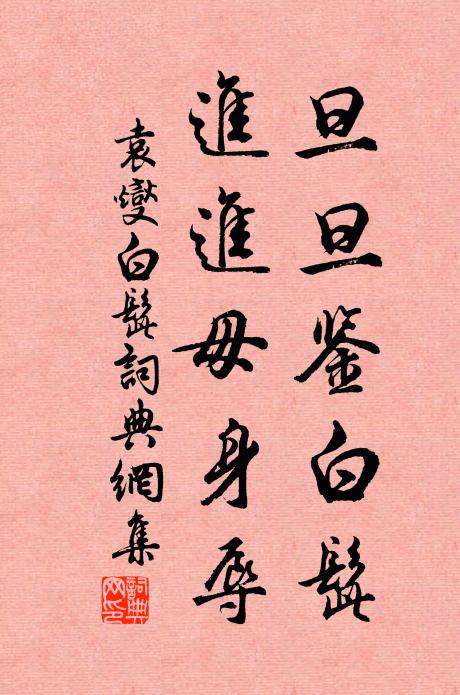 旦旦鉴白髭
進進毋身辱
袁燮白髭詞典網集
詞典
网印